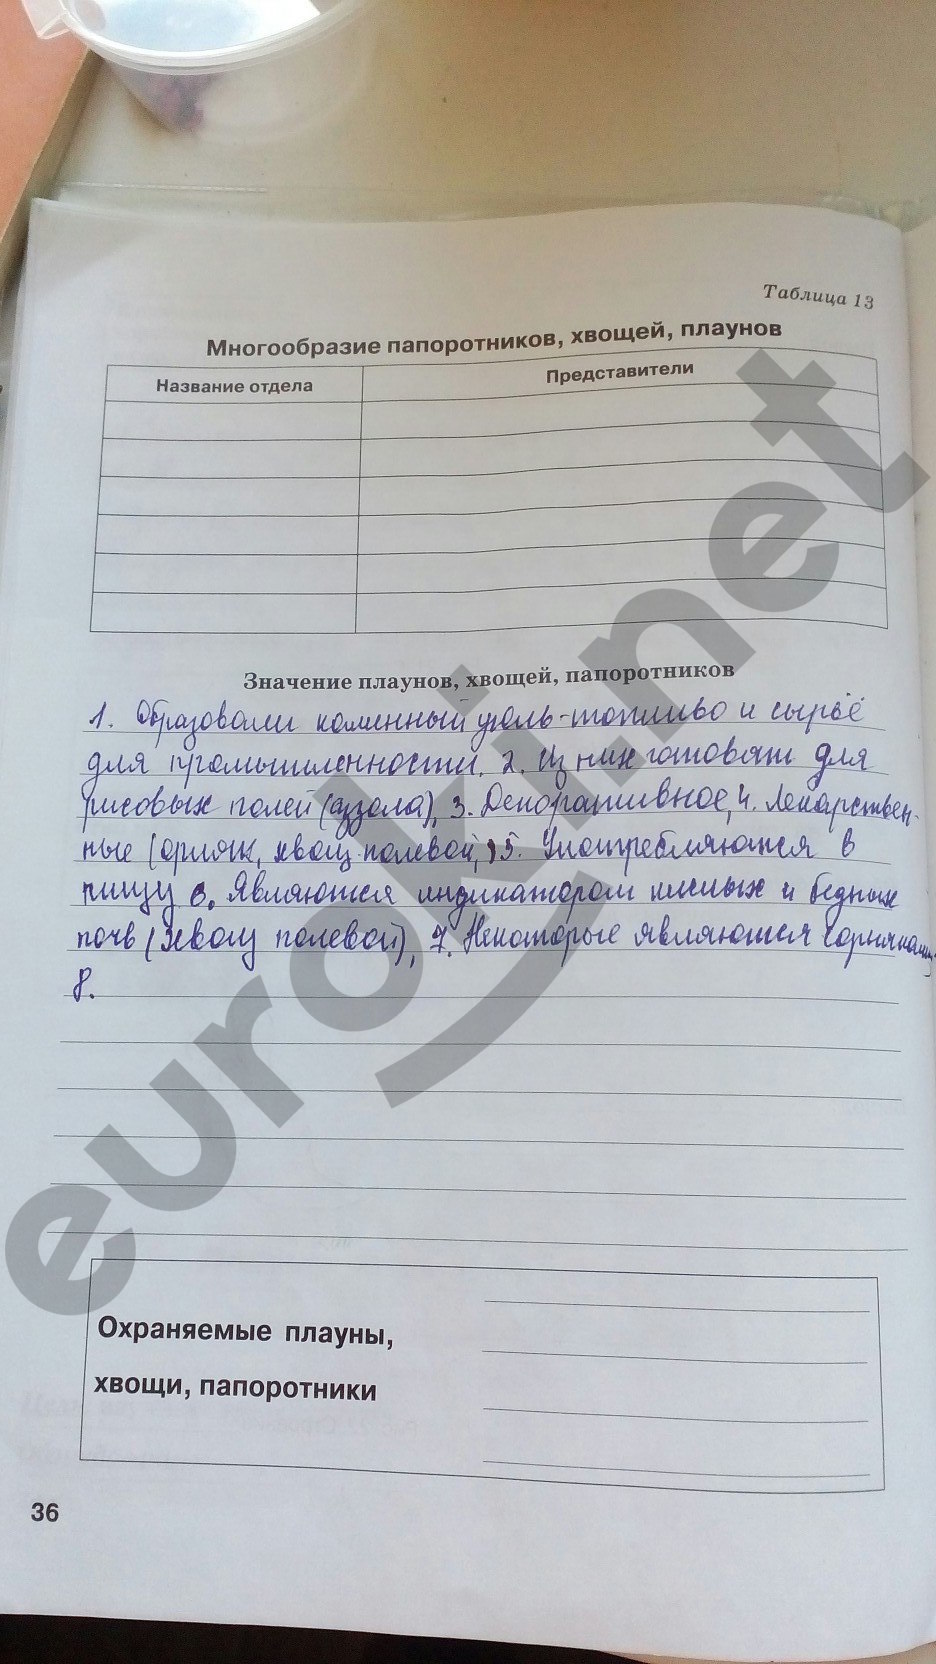 Таблица 13
Многообразие папоротников, хвощей, плаунов
Название отдела
Представители
Значение плаунов, хвощей, папоротников
1. Образовали каменный уголь-топливо и сырьё
для промышленности. 2. Из них готовят для
рисовых полей (аззола), 3. Декоративное, 4. Лекарствен-
ные (орляк, хвощ полевой, 5. Употребляются в
пищу 6. Являются индикатором кислых и бедных
почв (хвощ полевой), 7. Некоторые являются сорняками,
8.
Охраняемые плауны,
хвощи, папоротники
36
euroki.net